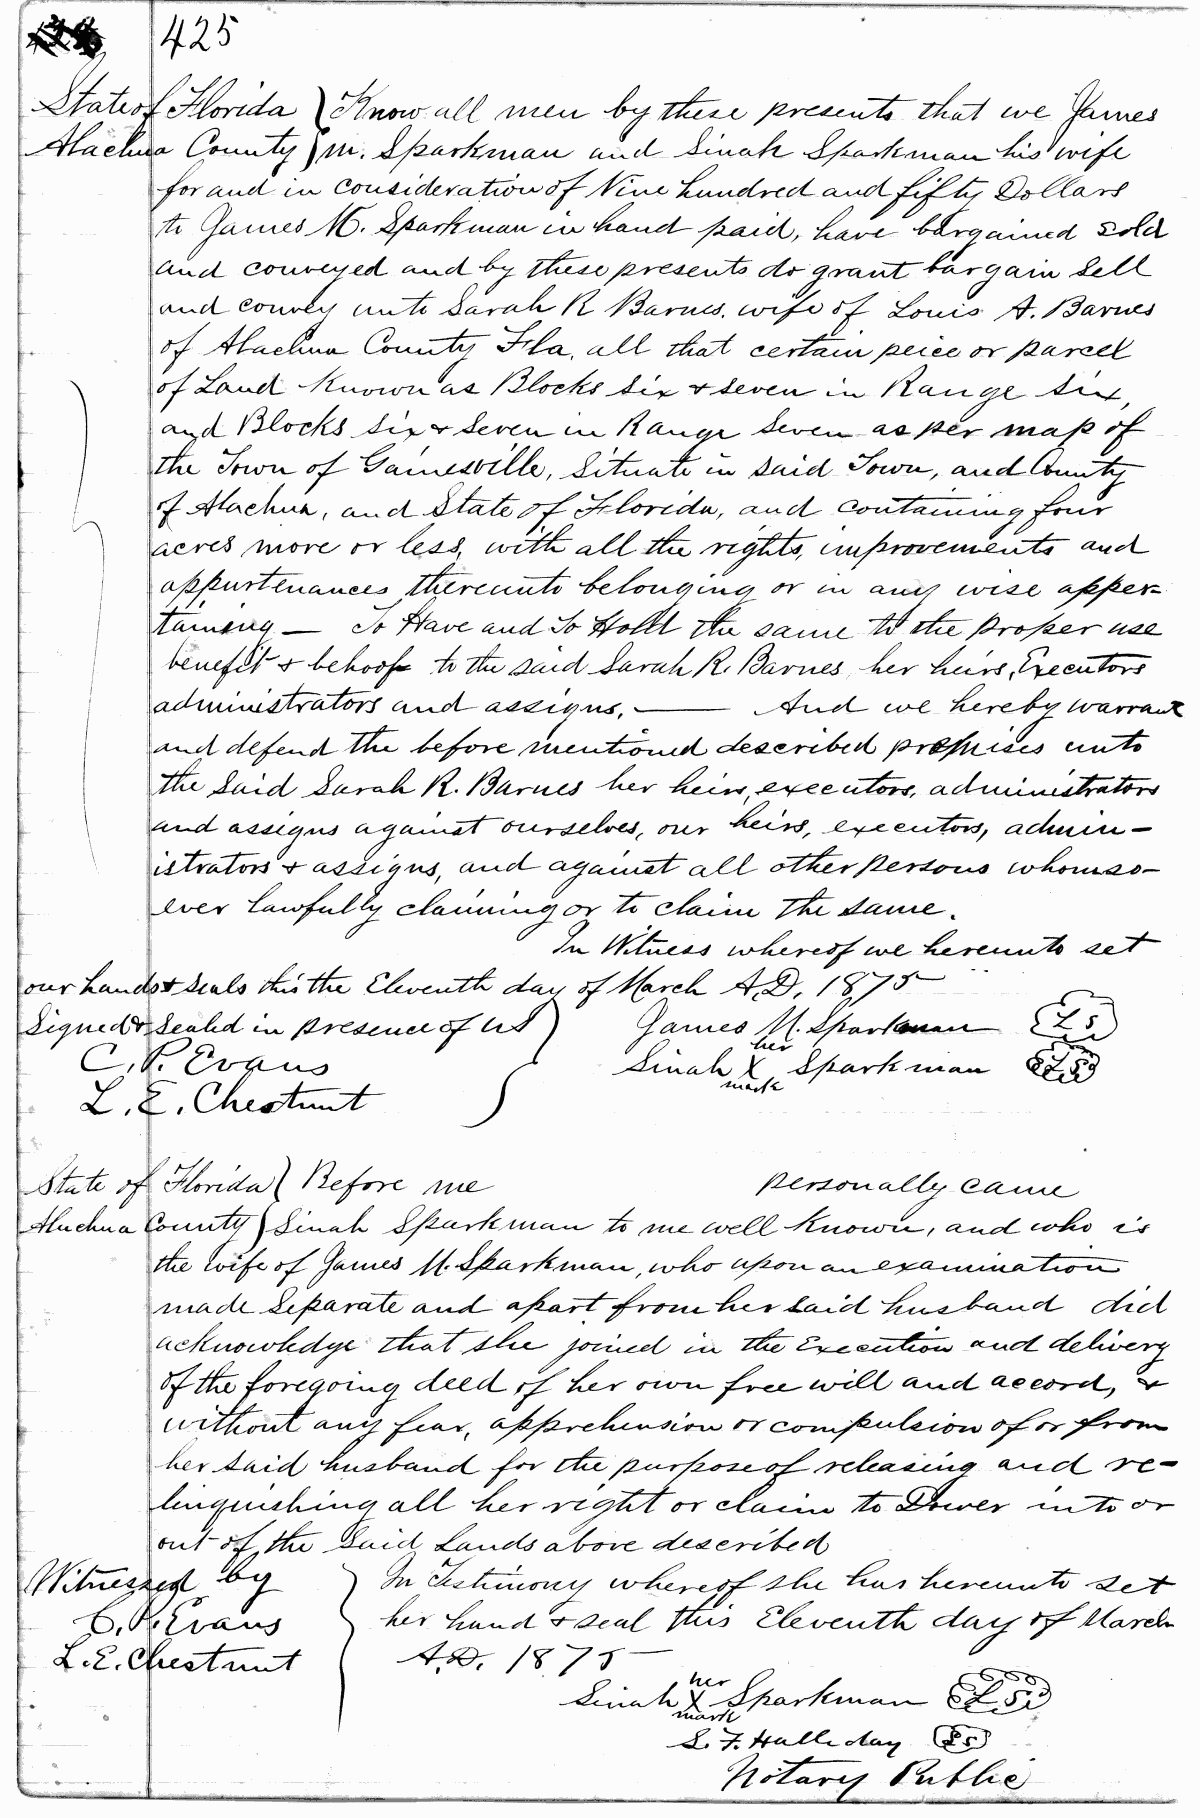 425
State of Florida } Know all men by these presents that we James
Alachua County } M. Sparkman and Sinah Sparkman his wife
for and in consideration of Nine hundred and fifty Dollars
to James M. Sparkman in hand paid, have bargained sold
and conveyed and by these presents do grant bargain sell
and convey unto Sarah R Barnes, wife of Louis A. Barnes
of Alachua County Fla, all that certain peice or parcel
of Land Known as Blocks six & seven in Range six,
and Blocks six & seven in Range Seven as per map of
the Town of Gainesville, Situate in said Town, and County
of Alachua, and State of Florida, and containing four
acres more or less, with all the rights, improvements and
appurtenances thereunto belonging or in any wise apper=
taining — To Have and To Hold the same to the proper use
benefit & behoof to the said Sarah R. Barnes, her heirs, Executors
administrators and assigns. — And we hereby warrant
and defend the before mentioned described premises unto
the Said Sarah R. Barnes her heirs, executors, administrators
and assigns against ourselves, our heirs, executors, admin-
istrators & assigns, and against all other persons whomso-
ever lawfully claiming or to claim the same.
In Witness whereof we hereunto set
our hands & seals this the Eleventh day of March A.D. 1875
Signed & Sealed in presence of us } James M. Sparkman LS
C. P. Evans Sinah her X mark Sparkman LS
L. E. Chestnut
State of Florida } Before me personally came
Alachua County } Sinah Sparkman to me well Known, and who is
the wife of James M. Sparkman, who upon an examination
made Separate and apart from her said husband did
acknowledge that she joined in the Execution and delivery
of the foregoing deed of her own free will and accord, &
without any fear, apprehension or compulsion of or from
her said husband for the purpose of releasing and re-
linquishing all her right or claim to Dower in to or
out of the Said Lands above described
Witnessed by } In Testimony whereof she has hereunto set
C. P. Evans her hand & seal this Eleventh day of March
L. E. Chestnut A.D. 1875
Sinah her X mark Sparkman LS
S. F. Halliday LS
Notary Public